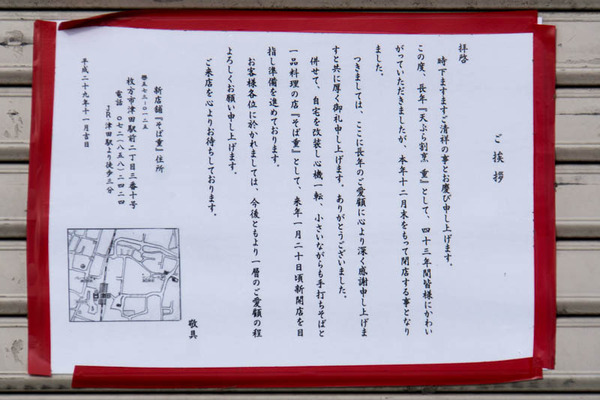 ご挨拶
拝啓
時下ますますご清祥の事とお慶び申し上げます。
この度、長年『天ぷら割烹 重』として、四十三年間皆様にかわい
がっていただきましたが、本年十二月末をもって閉店する事となり
ました。
つきましては、ここに長年のご愛顧に心より深く感謝申し上げま
すと共に厚く御礼申し上げます。ありがとうございました。
併せて、自宅を改装し心機一転、小さいながらも手打ちそばと
一品料理の店『そば重』として、来年一月二十日頃新開店を目
指し準備を進めております。
お客様各位に於かれましては、今後ともより一層のご愛顧の程
よろしくお願い申し上げます。
ご来店を心よりお待ちしております。
敬具
新店舗『そば重』住所
〒五七三-〇一二五
枚方市津田駅前二丁目三番十号
電話 〇七二(八五八)二四二四
JR津田駅より徒歩三分
平成二十九年十一月吉日